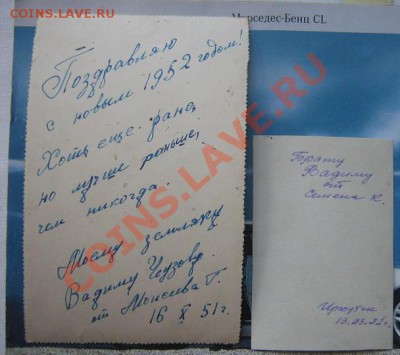 COINS.LAVE.RU
Мерседес-Бенц CL
Поздравляю
с новым 1952 годом!
Хоть еще рано,
но лучше раньше,
чем никогда.
Моему земляку
Вадиму
от Моисеева Г.
16 X 51 г.
Брату
Вадиму
от
Семена К.
Иркутск
COINS.LAVE.RU